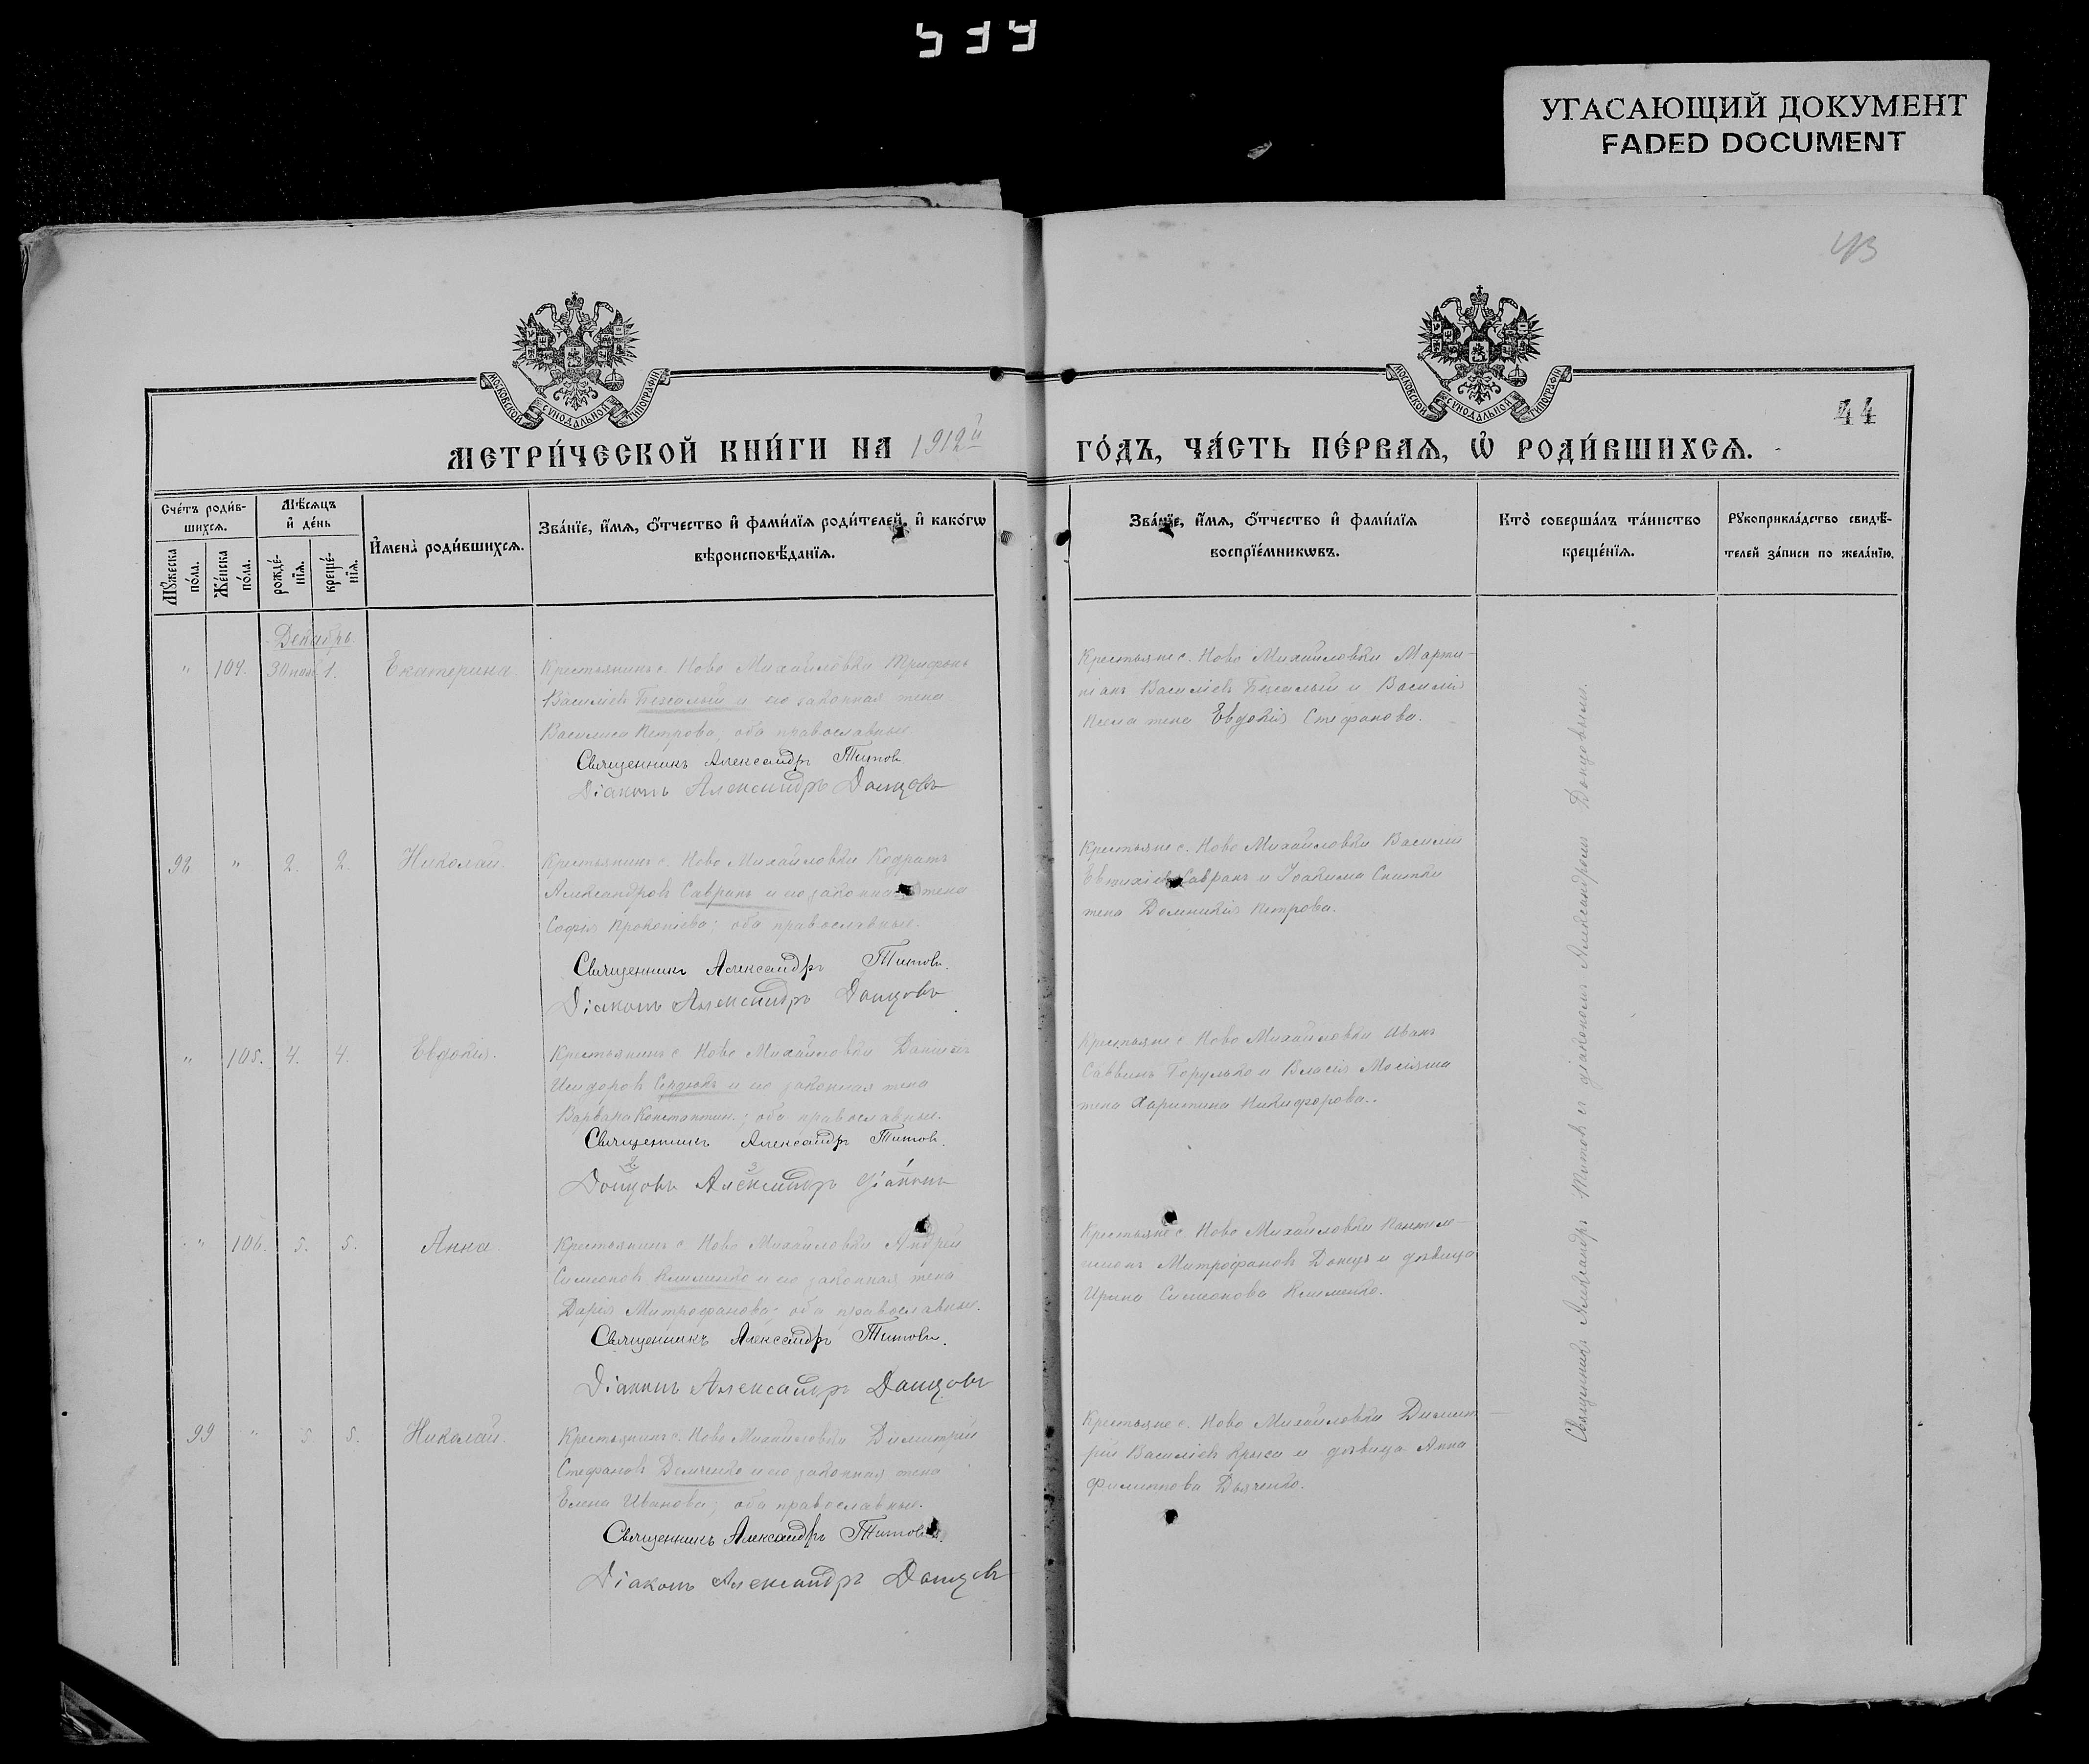 УГАСАЮЩИЙ ДОКУМЕНТ
FADED DOCUMENT
43
44
МОСКОВСКОЙ СѴНОДАЛЬНОЙ ТИПОГРАФІИ
МОСКОВСКОЙ СѴНОДАЛЬНОЙ ТИПОГРАФІИ
МЕТРИ́ЧЕСКОЙ КНИ́ГИ НА 1912й ГО́ДЪ, ЧА́СТЬ ПЕ́РВАѦ, Ѡ҆ РОДИ́ВШИХСѦ.
Сче́тъ роди́в-
шихсѧ.
Мꙋ́жеска по́ла.
Же́нска по́ла.
Мѣ́сѧцъ
и҆ де́нь
рожде́-
нїѧ.
креще́-
нїѧ.
И҆мена̀ роди́вшихсѧ.
Зва́нїе, и҆́мѧ, ѻ҆́тчество и҆ фами́лїѧ роди́телей, и҆ како́гѡ
вѣроисповѣ́данїѧ.
Зва́нїе, и҆́мѧ, ѻ҆́тчество и҆ фами́лїѧ
воспрїе́мникѡвъ.
Кто̀ соверша́лъ та́инство
креще́нїѧ.
Рꙋкоприкла́дство свидѣ́-
телей за́писи по жела́нїю.
Декабрь.
" 104. 30 нояб. 1. Екатерина.
Крестьянинъ с. Ново Михайловки Трифонъ
Васильевъ Безсалый и его законная жена
Василиса Петрова, оба православные.
Священникъ Александръ Титовъ
Діаконъ Александръ Донцовъ
Крестьяне с. Ново Михайловки Марти-
ніанъ Васильевъ Безсалый и Василія
жена Евдокія Стефанова.
98 " 2. 2. Николай.
Крестьянинъ с. Ново Михайловки Кодратъ
Александровъ Савранъ и его законная жена
Софія Прокопіева; оба православные.
Священникъ Александръ Титовъ.
Діаконъ Александръ Донцовъ
Крестьяне с. Ново Михайловки Василій
Евтихіевъ Савранъ и Іоакима Снитки
жена Домникія Петрова.
" 105. 4. 4. Евдокія.
Крестьянинъ с. Ново Михайловки Даніилъ
Исидоровъ Сердюкъ и его законная жена
Варвара Константин.; оба православные.
Священникъ Александръ Титовъ.
2 3 1
Донцовъ Александръ Діаконъ
Крестьяне с. Ново Михайловки Иванъ
Саввинъ Горулько и Власія
жена Харитина Никифорова.
" 106. 5. 5. Анна.
Крестьянинъ с. Ново Михайловки Андрей
Симеоновъ Клименко и его законная жена
Дарія Митрофанова; оба православные.
Священникъ Александръ Титовъ.
Діаконъ Александръ Донцовъ
Крестьяне с. Ново Михайловки Пантеле-
имонъ Митрофановъ Донцъ и дѣвица
Ирина Симеонова Клименко.
99 " 5 5. Николай.
Крестьянинъ с. Ново Михайловки Димитрій
Стефановъ Демченко и его законная жена
Елена Иванова; оба православные.
Священникъ Александръ Титовъ.
Діаконъ Александръ Донцовъ
Крестьяне с. Ново Михайловки Димит-
рій Васильевъ Крыса и дѣвица Анна
Филиппова Дьяченко.
Священникъ Александръ Титовъ съ діакономъ Александромъ Донцовымъ.